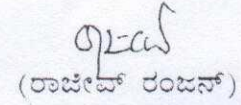 (ರಾಜೀವ್ ರಂಜನ್)